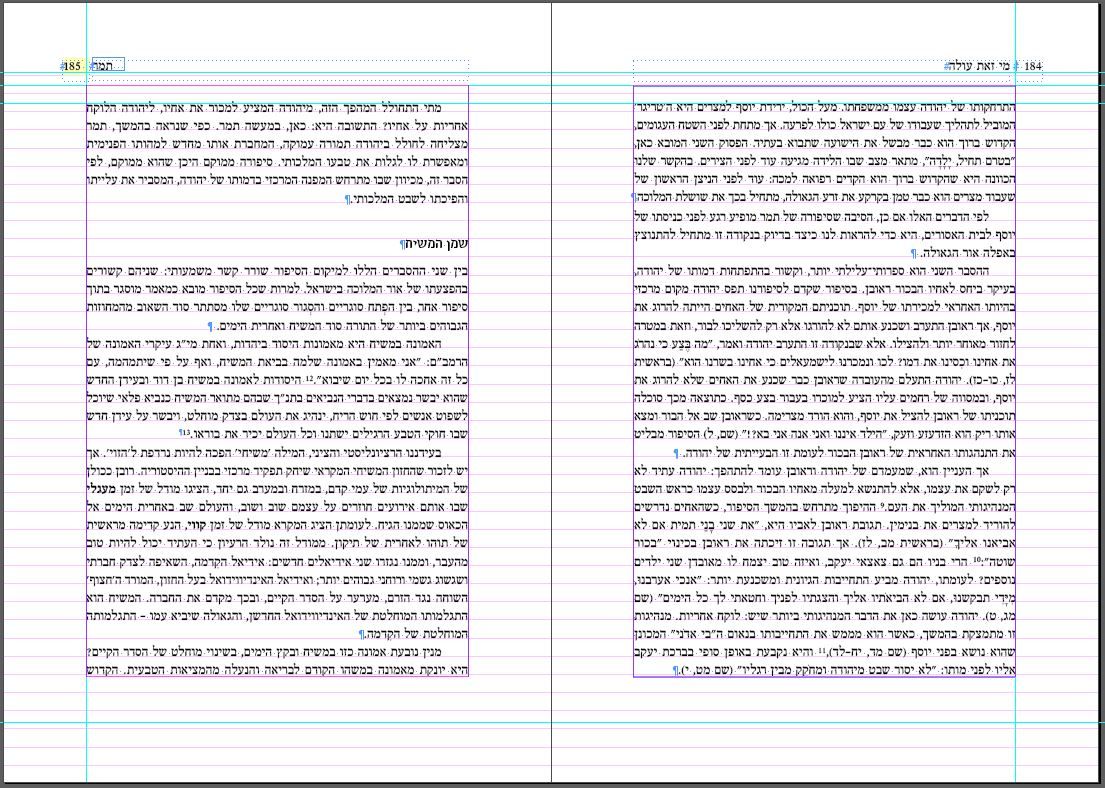 184 מי זאת עולה
התרחקותו של יהודה עצמו ממשפחתו. מעל הכול, ירידת יוסף למצרים היא ה'טריגר'
המוביל לתהליך שעבודו של עם ישראל כולו לפרעה. אך מתחת לפני השטח העגומים,
הקדוש ברוך הוא כבר מבשל את הישועה שתבוא בעתיה. הפסוק השני המובא כאן,
"בטרם תחיל, יָלָדָה", מתאר מצב שבו הלידה מגיעה עוד לפני הצירים. בהקשר שלנו
הכוונה היא שהקדוש ברוך הוא הקדים רפואה למכה: עוד לפני הניצן הראשון של
שעבוד מצרים הוא כבר טמן בקרקע את זרע הגאולה, מתחיל בכך את שושלת המלוכה.
לפי הדברים האלו אם כן, הסיבה שסיפורה של תמר מופיע רגע לפני כניסתו של
יוסף לבית האסורים, היא כדי להראות לנו כיצד בדיוק בנקודה זו מתחיל להתנוצץ
באפלה אור הגאולה.
ההסבר השני הוא ספרותי־עלילתי יותר, וקשור בהתפתחות דמותו של יהודה,
בעיקר ביחס לאחיו הבכור ראובן. בסיפור שקדם לסיפורנו תפס יהודה מקום מרכזי
בהיותו האחראי למכירתו של יוסף. תוכניתם המקורית של האחים הייתה להרוג את
יוסף, אך ראובן התערב ושכנע אותם לא להורגו אלא רק להשליכו לבור, וזאת במטרה
לחזור מאוחר יותר ולהצילו. אלא שבנקודה זו התערב יהודה ואמר, "מה בֶּצַע כי נהרֹג
את אחינו וכסינו את דמו? לכו ונמכרנו לישמעאלים כי אחינו בשרנו הוא" (בראשית
לז, כו–כז). יהודה התעלם מהעובדה שראובן כבר שכנע את האחים שלא להרוג את
יוסף, ובמסווה של רחמים עליו הציע למוכרו בעבור בצע כסף. כתוצאה מכך סוכלה
תוכניתו של ראובן להציל את יוסף, והוא הורד מצרימה. כשראובן שב אל הבור ומצא
אותו ריק הוא הזדעזע וזעק, "הילד איננו ואני אנה אני בא?!" (שם, ל) הסיפור מבליט
את התנהגותו האחראית של ראובן הבכור לעומת זו הבעייתית של יהודה.
אך העניין הוא, שמעמדם של יהודה וראובן עומד להתהפך: יהודה עתיד לא
רק לשקם את עצמו, אלא להתנשא למעלה מאחיו הבכור ולבסס עצמו כראש השבט
המנהיגותי המוליך את העם.⁹ ההיפוך מתרחש בהמשך הסיפור, כשהאחים נדרשים
להוריד למצרים את בנימין. תגובת ראובן לאביו היא, "את שני בָנַי תמית אם לא
אביאנו אליך" (בראשית מב, לז). אך תגובה זו זיכתה את ראובן בכינוי "בכור
שוטה":¹⁰ הרי בניו הם גם צאצאי יעקב, ואיזה טוב יצמח לו מאובדן שני ילדים
נוספים? לעומתו, יהודה מביע התחייבות הגיונית ומשכנעת יותר: "אנכי אערבנו,
מיָּדי תבקשנו, אם לא הביאֹתיו אליך והצגתיו לפניך וחטאתי לך כל הימים" (שם
מג, ט). יהודה עושה כאן את הדבר המנהיגותי ביותר שיש: לוקח אחריות. מנהיגות
זו מתמצקת בהמשך, כאשר הוא מממש את התחייבותו בנאום ה"בי אדֹני" המכונן
שהוא נושא בפני יוסף (שם מד, יח–לד),¹¹ והיא נקבעת באופן סופי בברכת יעקב
אליו לפני מותו: "לא יסור שבט מיהודה ומחֹקק מבין רגליו" (שם מט, י).
תמר 185
מתי התחולל המהפך הזה, מיהודה המציע למכור את אחיו, ליהודה הלוקח
אחריות על אחיו? התשובה היא: כאן, במעשה תמר. כפי שנראה בהמשך, תמר
מצליחה לחולל ביהודה תמורה עמוקה, המחברת אותו מחדש למהותו הפנימית
ומאפשרת לו לגלות את טבעו המלכותי. סיפורה ממוקם היכן שהוא ממוקם, לפי
הסבר זה, מכיוון שבו מתרחש המפנה המרכזי בדמותו של יהודה, המסביר את עלייתו
והפיכתו לשבט המלכותי.
שמן המשיח
בין שני ההסברים הללו למיקום הסיפור שורר קשר משמעותי: שניהם קשורים
בהפצעתו של אור המלוכה בישראל. למרות שכל הסיפור מובא כמאמר מוסגר בתוך
סיפור אחר, בין הפֶּתח סוגריים והסְגור סוגריים שלו מסתתר סוד השאוב מהמחוזות
הגבוהים ביותר של התורה סוד המשיח ואחרית הימים.
האמונה במשיח היא מאמונות היסוד ביהדות, ואחת מי"ג עיקרי האמונה של
הרמב"ם: "אני מאמין באמונה שלמה בביאת המשיח, ואף על פי שיתמהמה, עם
כל זה אחכה לו בכל יום שיבוא".¹² היסודות לאמונה במשיח בן דוד ובעידן החדש
שהוא יבשר נמצאים בדברי הנביאים בתנ"ך שבהם מתואר המשיח כנביא פלאי שיוכל
לשפוט אנשים לפי חוש הריח, ינהיג את העולם בצדק מוחלט, ויבשר על עידן חדש
שבו חוקי הטבע הרגילים ישתנו וכל העולם יכיר את בוראו.¹³
בעידננו הרציונליסטי והציני, המילה 'משיחי' הפכה להיות נרדפת ל'הזוי'. אך
יש לזכור שהחזון המשיחי המקראי שיחק תפקיד מרכזי בבניין ההיסטוריה. רובן ככולן
של המיתולוגיות של עמי קדם, במזרח ובמערב גם יחד, הציגו מודל של זמן מעגלי
שבו אותם אירועים חוזרים על עצמם שוב ושוב, והעולם שב באחרית הימים אל
הכאוס שממנו הגיח. לעומתן הציג המקרא מודל של זמן קווי, הנע קדימה מראשית
של תוהו לאחרית של תיקון. ממודל זה נולד הרעיון כי העתיד יכול להיות טוב
מהעבר, וממנו נגזרו שני אידיאלים חדשים: אידיאל הקדמה, השאיפה לצדק חברתי
ושגשוג גשמי ורוחני גבוהים יותר; ואידיאל האינדיווידואל בעל החזון, המורד ה'חצוף'
השוחה נגד הזרם, מערער על הסדר הקיים, ובכך מקדם את החברה. המשיח הוא
התגלמותו המוחלטת של האינדיווידואל החדשן, והגאולה שיביא עמו – התגלמותה
המוחלטת של הקדמה.
מנין נובעת אמונה כזו במשיח ובקץ הימים, בשינוי מוחלט של הסדר הקיים?
היא יונקת מאמונה במשהו הקודם לבריאה והנעלה מהמציאות הטבעית. הקדוש